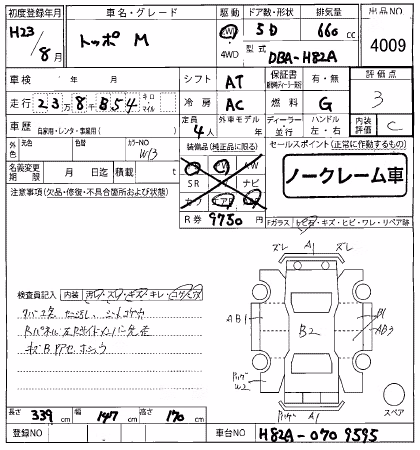 初度登録年月 車名・グレード 駆動 ドア数・形状 排気量 出品NO
H23 / 8月 トッポ M 2WD 4WD 5D 660 cc 4009
型式 DBA-H82A
車検 年 月 シフト AT 保証書 有・無 評価点 3
走行 23万8千854 キロ マイル 冷房 AC 燃料 G
車歴 自家用・レンタ・事業用( ) 定員 4人 外車モデル 年 ディーラー 並行 ハンドル 左・右 内装評価 C
外色 元色 色替 カラーNO W13
装備品(純正品に限る) セールスポイント(正常に作動するもの)
名義変更期限 月 日迄 積載 t
SR ナビ
ノークレーム車
注意事項(欠品・修復・不具合箇所および状態)
R券 9750 Fガラス トビ石・キズ・ヒビ・ワレ・リペア跡
ズレ A1 ズレ
検査員記入 内装 汚レ・スレ・キズ・キレ・コゲ・穴
AB1 B2 AB3
W2
A1
スペア
長さ 339 cm 幅 147 cm 高さ 170 cm
登録NO 車台NO H82A-0709595